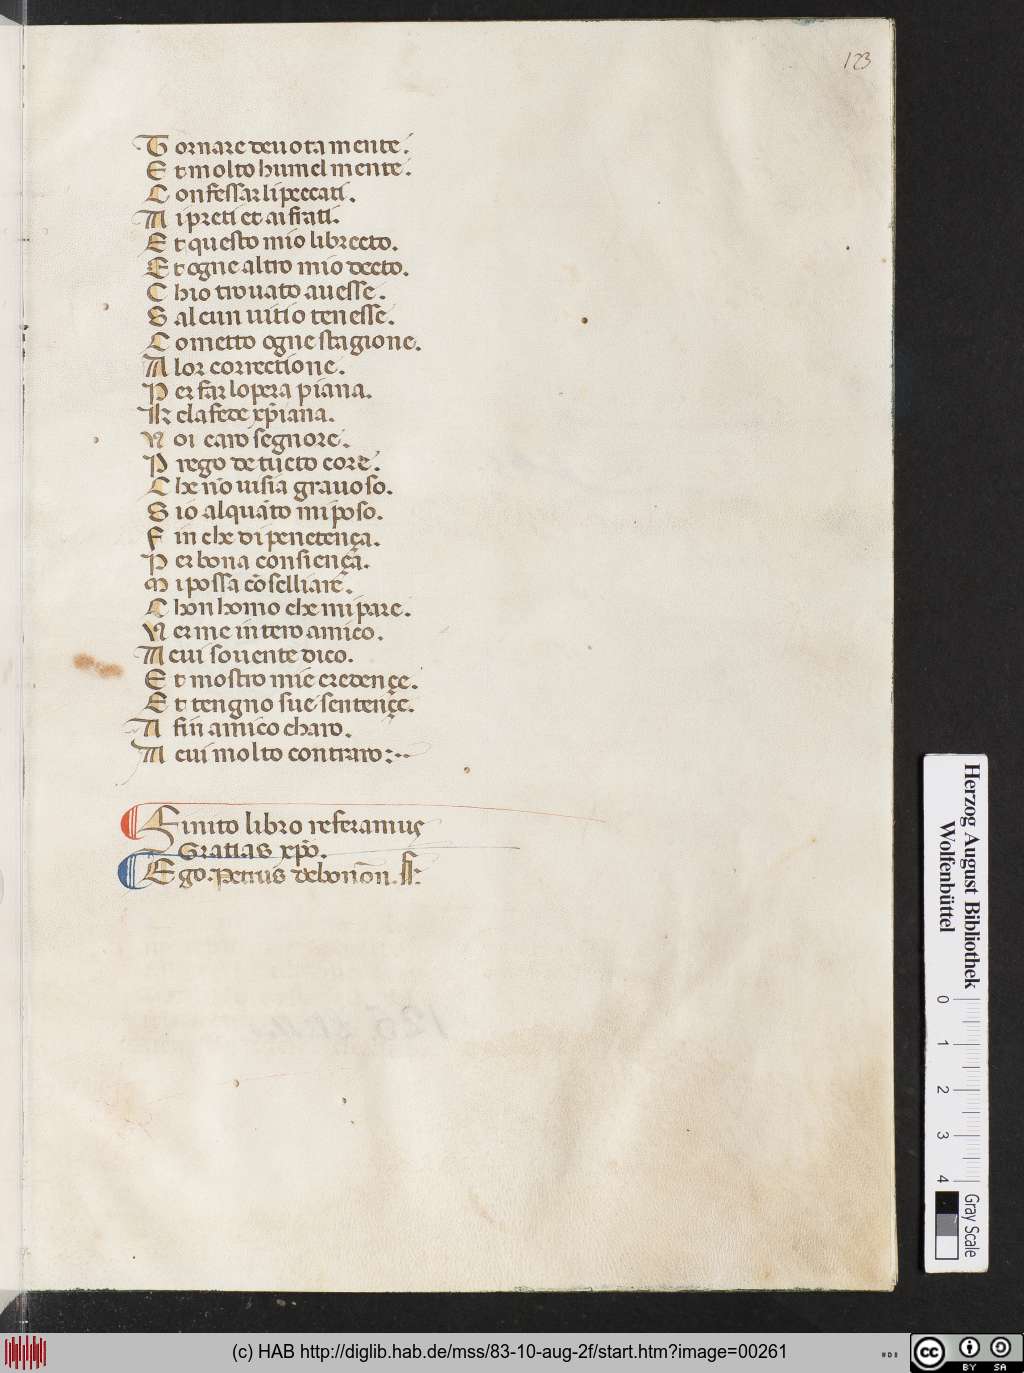 123
Tornare deuota mente.
Et molto humel mente.
Confessar li peccati.
Ai preti et ai frati.
Et questo mio librecto.
Et ogne altro mio decto.
Chio trouato auesse.
Salcun uitio tenesse.
Cometto ogne stagione.
Alor correctione.
Per far lopera piana.
Ke la fede xp̄iana.
Uoi caro segnore.
Prego de tucto core.
Che nō uisia grauoso.
Sio alquāto mi poso.
Fin che di penetença.
Per bona consiença.
Mi possa cōselliare.
Chon homo che mi pare.
Uer me intero amico.
A cui souente dico.
Et mostro mie credençe.
Et tengno sue sentençe.
A fin amico charo.
A cui molto contraro:~
Finito libro referamus
Gratias xp̄o.
Ego Petrus debonōn. ss.
Herzog August Bibliothek
Wolfenbüttel
0 1 2 3 4
Gray Scale
(c) HAB http://diglib.hab.de/mss/83-10-aug-2f/start.htm?image=00261
cc BY SA